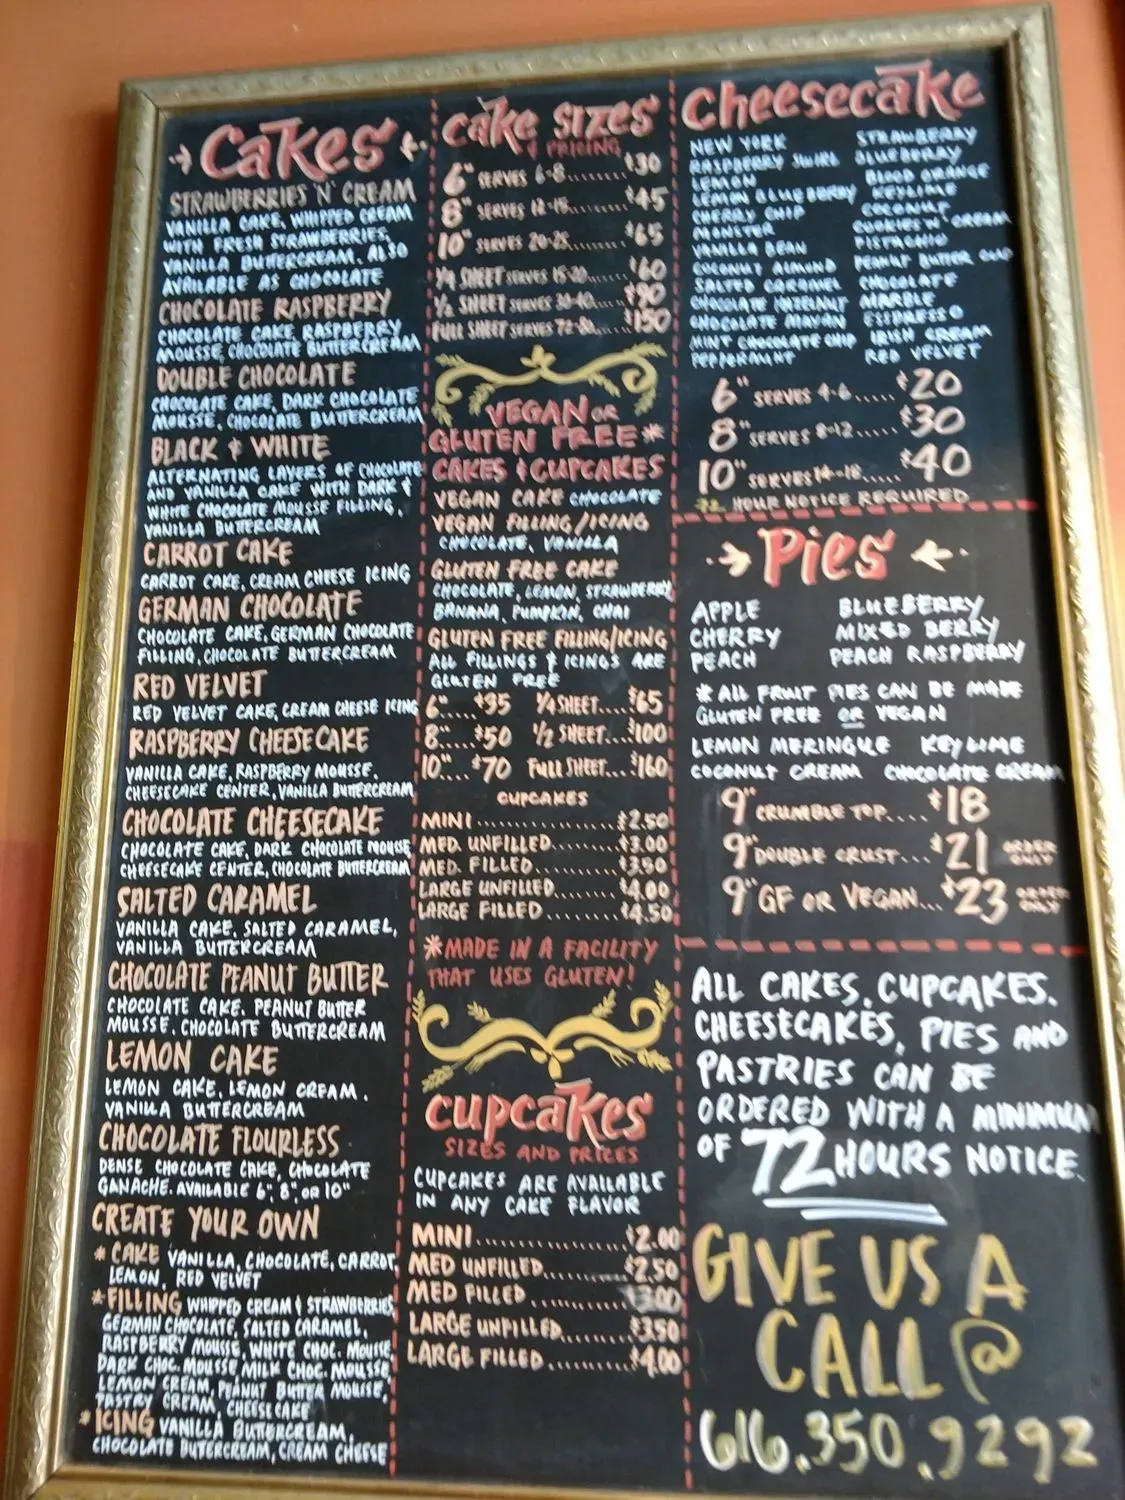 Cakes
STRAWBERRIES 'N' CREAM
VANILLA CAKE, WHIPPED CREAM
WITH FRESH STRAWBERRIES,
VANILLA BUTTERCREAM, ALSO
AVAILABLE AS CHOCOLATE
CHOCOLATE RASPBERRY
CHOCOLATE CAKE, RASPBERRY
MOUSSE, CHOCOLATE BUTTERCREAM
DOUBLE CHOCOLATE
CHOCOLATE CAKE, DARK CHOCOLATE
MOUSSE, CHOCOLATE BUTTERCREAM
BLACK & WHITE
ALTERNATING LAYERS OF CHOCOLATE
AND VANILLA CAKE WITH DARK &
WHITE CHOCOLATE MOUSSE FILLING,
VANILLA BUTTERCREAM
CARROT CAKE
CARROT CAKE, CREAM CHEESE ICING
GERMAN CHOCOLATE
CHOCOLATE CAKE, GERMAN CHOCOLATE
FILLING, CHOCOLATE BUTTERCREAM
RED VELVET
RED VELVET CAKE, CREAM CHEESE ICING
RASPBERRY CHEESECAKE
VANILLA CAKE, RASPBERRY MOUSSE,
CHEESECAKE CENTER, VANILLA BUTTERCREAM
CHOCOLATE CHEESECAKE
CHOCOLATE CAKE, DARK CHOCOLATE MOUSSE
CHEESECAKE CENTER, CHOCOLATE BUTTERCREAM
SALTED CARAMEL
VANILLA CAKE, SALTED CARAMEL,
VANILLA BUTTERCREAM
CHOCOLATE PEANUT BUTTER
CHOCOLATE CAKE, PEANUT BUTTER
MOUSSE, CHOCOLATE BUTTERCREAM
LEMON CAKE
LEMON CAKE, LEMON CREAM,
VANILLA BUTTERCREAM
CHOCOLATE FLOURLESS
DENSE CHOCOLATE CAKE, CHOCOLATE
GANACHE. AVAILABLE 6", 8", OR 10"
CREATE YOUR OWN
*CAKE VANILLA, CHOCOLATE, CARROT,
LEMON, RED VELVET
*FILLING WHIPPED CREAM & STRAWBERRIES,
GERMAN CHOCOLATE, SALTED CARAMEL,
RASPBERRY MOUSSE, WHITE CHOC. MOUSSE,
DARK CHOC. MOUSSE, MILK CHOC. MOUSSE,
LEMON CREAM, PEANUT BUTTER MOUSSE,
PASTRY CREAM, CHEESECAKE
*ICING VANILLA BUTTERCREAM,
CHOCOLATE BUTERCREAM, CREAM CHEESE
Cake Sizes
& PRICING
6" SERVES 6-8........$30
8" SERVES 12-15........$45
10" SERVES 20-25........$65
1/4 SHEET SERVES 15-20......$60
1/2 SHEET SERVES 30-40......$90
FULL SHEET SERVES 72-80.....$150
VEGAN OR
GLUTEN FREE*
CAKES & CUPCAKES
VEGAN CAKE CHOCOLATE
VEGAN FILLING/ICING
CHOCOLATE, VANILLA
GLUTEN FREE CAKE
CHOCOLATE, LEMON, STRAWBERRY
BANANA, PUMPKIN, CHAI
GLUTEN FREE FILLING/ICING
ALL FILLINGS & ICINGS ARE
GLUTEN FREE
6"....$35 1/4 SHEET....$65
8"....$50 1/2 SHEET...$100
10"...$70 FULL SHEET...$160
CUPCAKES
MINI................$2.50
MED. UNFILLED........$3.00
MED. FILLED..........$3.50
LARGE UNFILLED.......$4.00
LARGE FILLED........$4.50
*MADE IN A FACILITY
THAT USES GLUTEN!
Cupcakes
SIZES AND PRICES
CUPCAKES ARE AVAILABLE
IN ANY CAKE FLAVOR
MINI..................$2.00
MED UNFILLED.........$2.50
MED FILLED..........$3.00
LARGE UNFILLED.......$3.50
LARGE FILLED..........$4.00
Cheesecake
NEW YORK STRAWBERRY
RASPBERRY SWIRL BLUEBERRY
LEMON BLOOD ORANGE
LEMON BLUEBERRY KEYLIME
CHERRY CHIP COCONUT
MONSTER COOKIES 'N' CREAM
VANILLA BEAN PISTACHIO
COCONUT ALMOND PEANUT BUTTER CUP
SALTED CARAMEL CHOCOLATE
CHOCOLATE HAZELNUT MARBLE
CHOCOLATE MAYAN ESSPRESSO
MINT CHOCOLATE CHIP IRISH CREAM
PEPPERMINT RED VELVET
6" SERVES 4-6.....$20
8" SERVES 8-12.....$30
10" SERVES 14-18.....$40
72 HOUR NOTICE REQUIRED
Pies
APPLE BLUEBERRY
CHERRY MIXED BERRY
PEACH PEACH RASPBERRY
*ALL FRUIT PIES CAN BE MADE
GLUTEN FREE OR VEGAN
LEMON MERINGUE KEY LIME
COCONUT CREAM CHOCOLATE CREAM
9" CRUMBLE TOP....$18
9" DOUBLE CRUST...$21 ORDER ONLY
9" GF OR VEGAN...$23 ORDER ONLY
ALL CAKES, CUPCAKES,
CHEESECAKES, PIES AND
PASTRIES CAN BE
ORDERED WITH A MINIMUM
OF 72 HOURS NOTICE.
GIVE US A
CALL @
616.350.9292